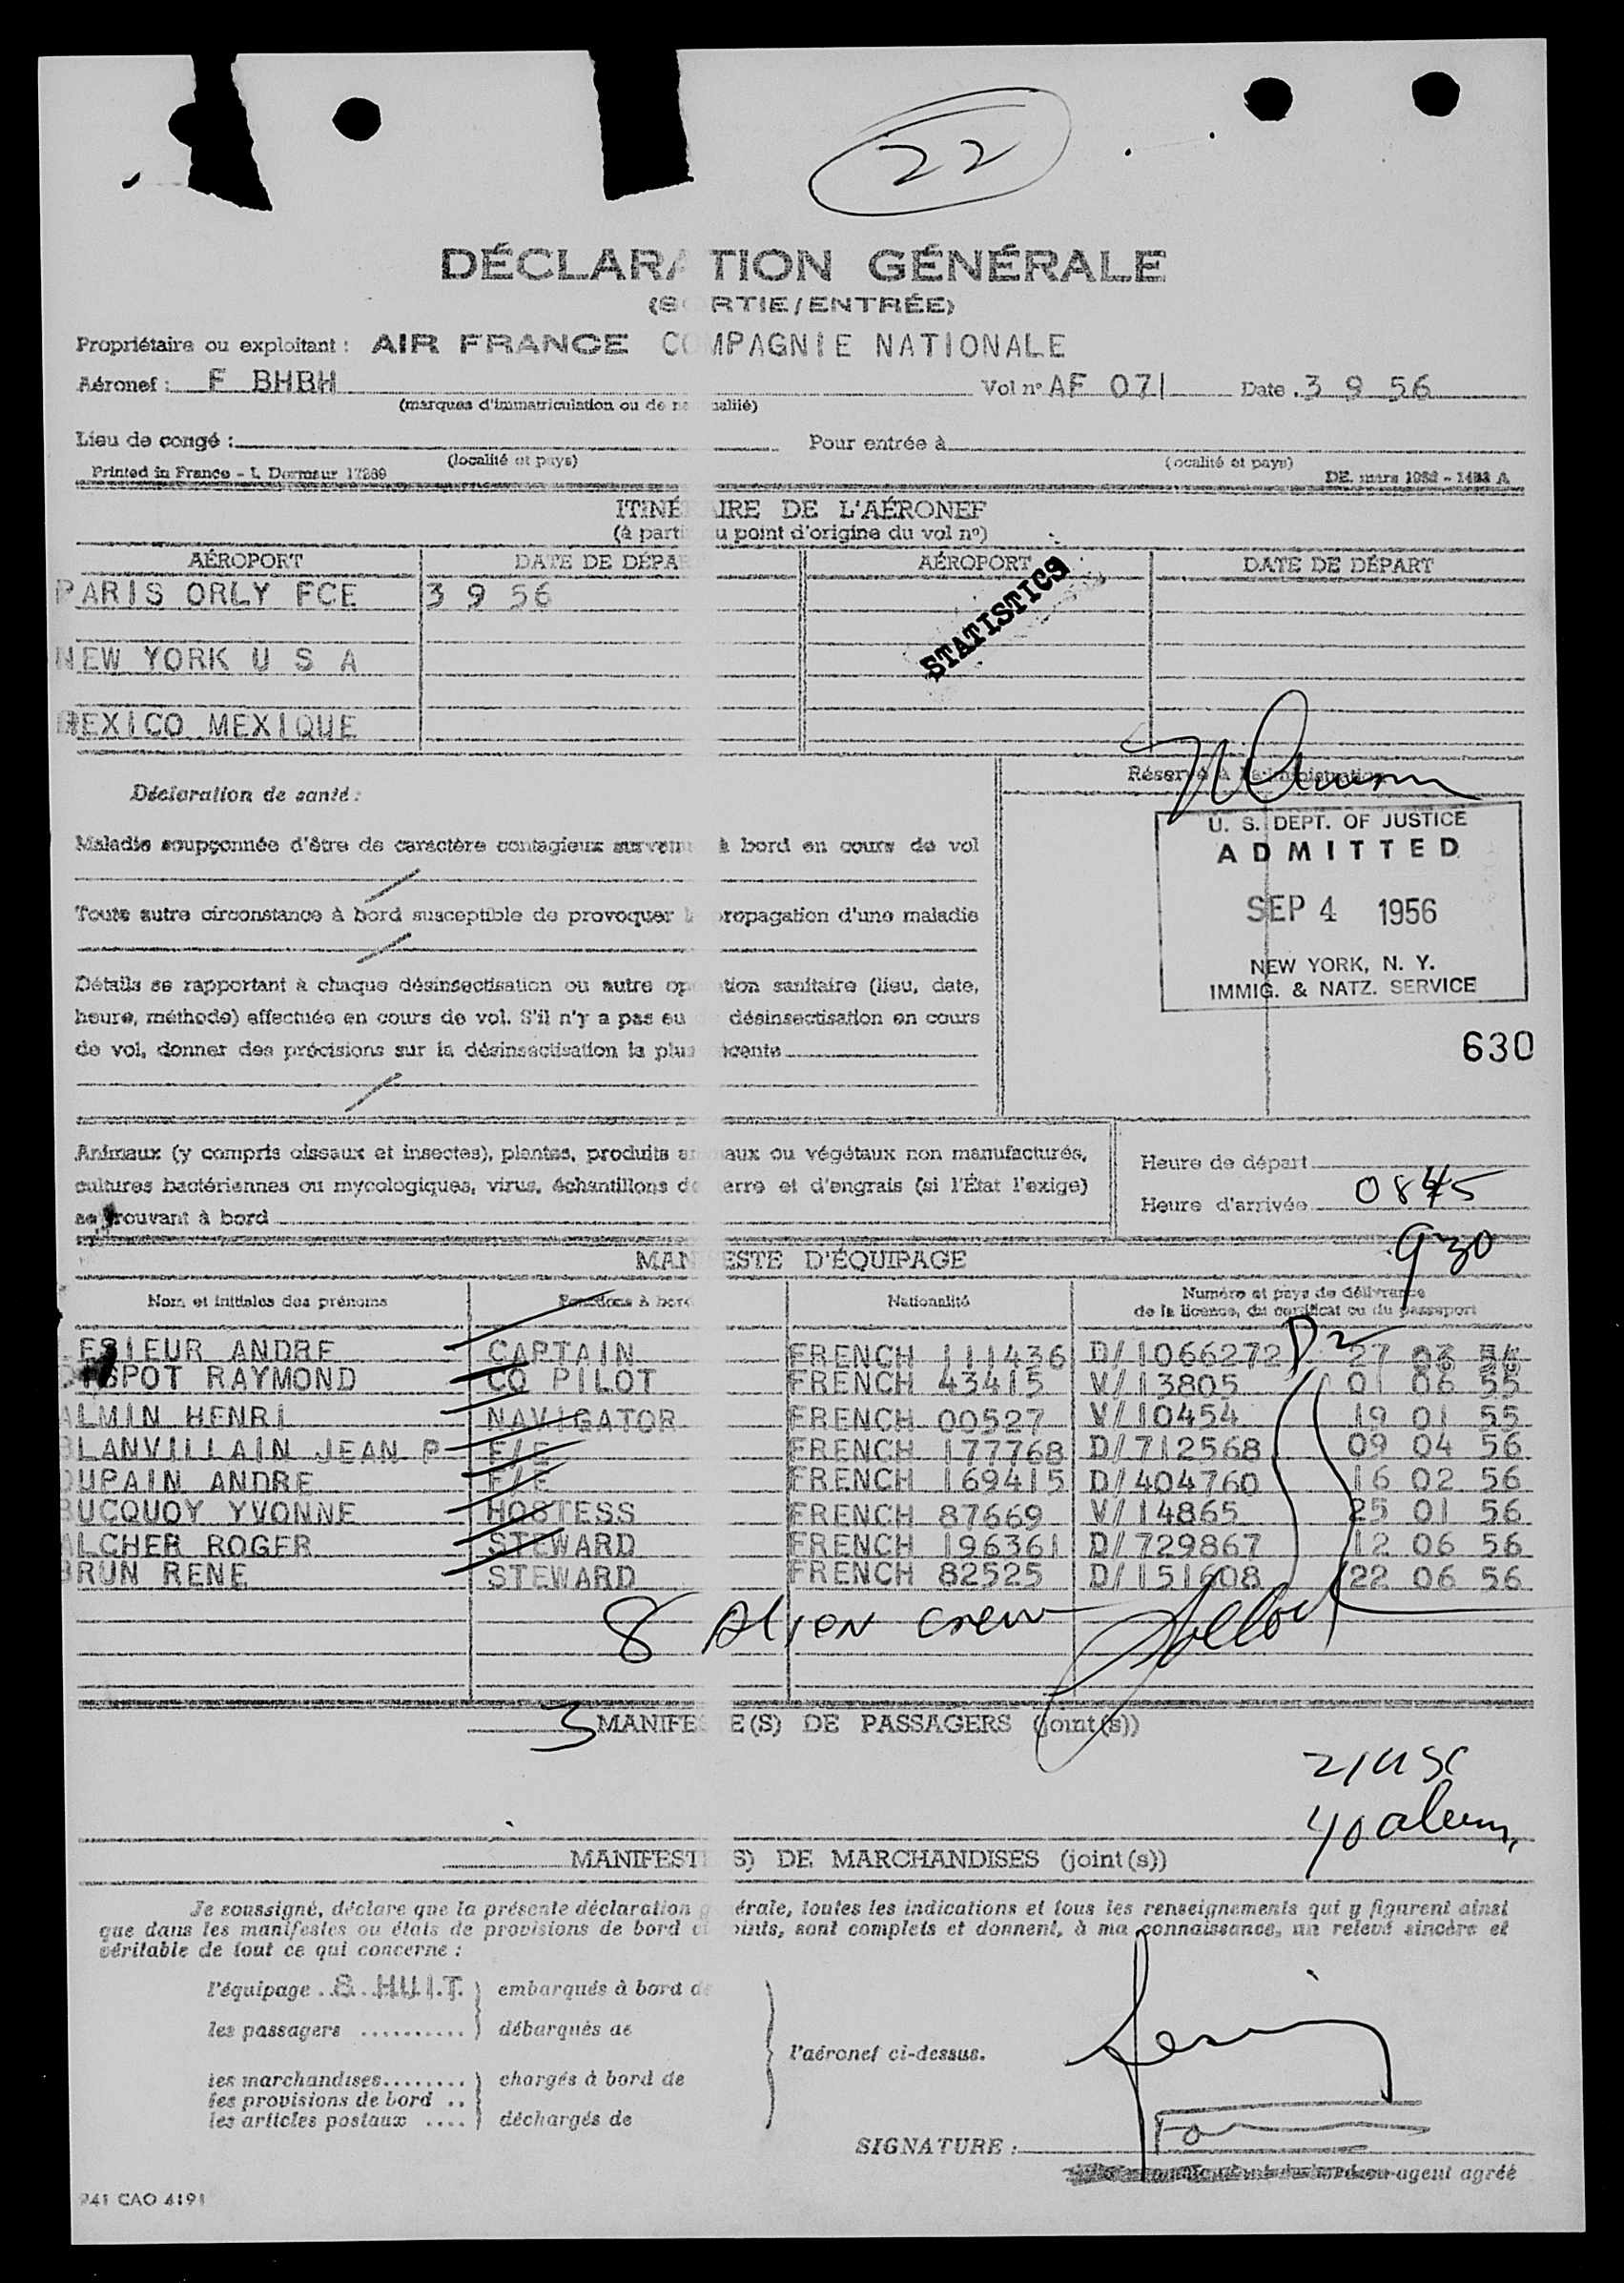 22
DÉCLARATION GÉNÉRALE
(SORTIE/ENTRÉE)
Propriétaire ou exploitant : AIR FRANCE COMPAGNIE NATIONALE
Aéronef : F BHBH Vol n° AF 071 Date 3 9 56
(marques d'immatriculation ou de nationalité)
Lieu de congé : Pour entrée à
(localité et pays) (localité et pays)
Printed in France - I. Dormeur 17289 DE. mars 1952 - 1483 A
ITINÉRAIRE DE L'AÉRONEF
(à partir du point d'origine du vol n°)
AÉROPORT DATE DE DÉPART AÉROPORT DATE DE DÉPART
PARIS ORLY FCE 3 9 56
STATISTICS
NEW YORK U S A
MEXICO MEXIQUE
Déclaration de santé :
Réservé à l'administration
Maladie soupçonnée d'être de caractère contagieux survenue à bord en cours de vol
Toute autre circonstance à bord susceptible de provoquer la propagation d'une maladie
Détails se rapportant à chaque désinsectisation ou autre opération sanitaire (lieu, date,
heure, méthode) effectuée en cours de vol. S'il n'y a pas eu de désinsectisation en cours
de vol, donner des précisions sur la désinsectisation la plus récente
U. S. DEPT. OF JUSTICE
ADMITTED
SEP 4 1956
NEW YORK, N. Y.
IMMIG. & NATZ. SERVICE
630
Animaux (y compris oiseaux et insectes), plantes, produits animaux ou végétaux non manufacturés,
cultures bactériennes ou mycologiques, virus, échantillons de terre et d'engrais (si l'État l'exige)
se trouvant à bord
Heure de départ
Heure d'arrivée 0845
930
MANIFESTE D'ÉQUIPAGE
Nom et initiales des prénoms Fonctions à bord Nationalité Numéro et pays de délivrance
de la licence, du certificat ou du passeport
ESIEUR ANDRE CAPTAIN FRENCH 111436 D/1066272 27 03 54
SPOT RAYMOND CO PILOT FRENCH 43415 V/13805 01 06 55
ALMIN HENRI NAVIGATOR FRENCH 00527 V/10454 19 01 55
BLANVILLAIN JEAN P F/E FRENCH 177768 D/712568 09 04 56
DUPAIN ANDRE F/E FRENCH 169415 D/404760 16 02 56
BUCQUOY YVONNE HOSTESS FRENCH 87669 V/14865 25 01 56
ALCHER ROGER STEWARD FRENCH 196361 D/729867 12 06 56
BRUN RENE STEWARD FRENCH 82525 D/151608 22 06 56
8 Alien crew
3 MANIFESTE(S) DE PASSAGERS (joint(s))
21 USC
40 alien
MANIFESTE(S) DE MARCHANDISES (joint(s))
Je soussigné, déclare que la présente déclaration générale, toutes les indications et tous les renseignements qui y figurent ainsi
que dans les manifestes ou états de provisions de bord ci-joints, sont complets et donnent, à ma connaissance, un relevé sincère et
véritable de tout ce qui concerne :
l'équipage 8 HUIT embarqués à bord de
les passagers débarqués de
l'aéronef ci-dessus.
les marchandises chargés à bord de
les provisions de bord
les articles postaux déchargés de
SIGNATURE :
agent agréé
941 CAO 4191